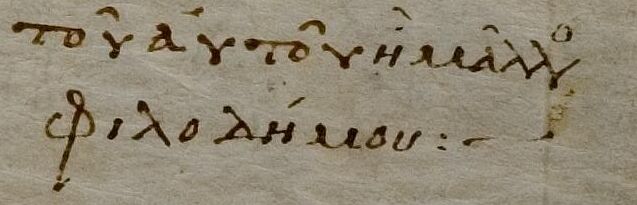 τοῦ αὐτοῦ ἢ μᾶλλο
φιλοδήμου :–